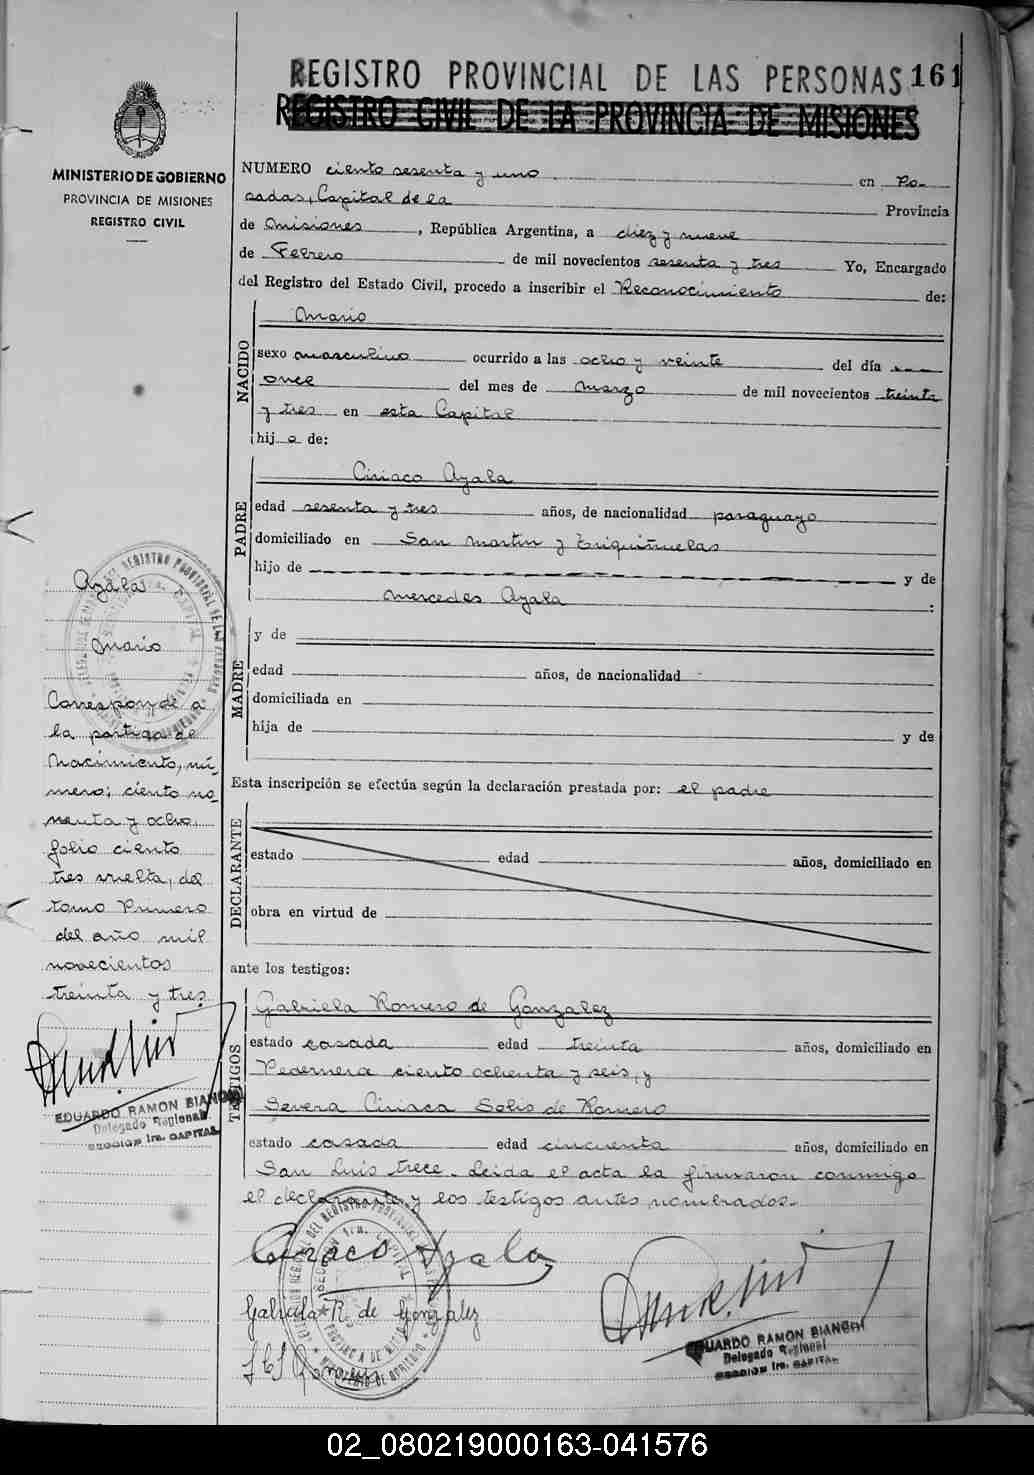 REGISTRO PROVINCIAL DE LAS PERSONAS 161
REGISTRO CIVIL DE LA PROVINCIA DE MISIONES
MINISTERIO DE GOBIERNO
PROVINCIA DE MISIONES
REGISTRO CIVIL
NUMERO ciento sesenta y uno en Po-
sadas, Capital de la Provincia
de Misiones, República Argentina, a diez y nueve
de Febrero de mil novecientos sesenta y tres Yo, Encargado
del Registro del Estado Civil, procedo a inscribir el Reconocimiento de:
NACIDO
Mario
sexo masculino ocurrido a las ocho y veinte del día
once del mes de marzo de mil novecientos treinta
y tres en esta Capital
hij o de:
PADRE
Ciriaco Ayala
edad sesenta y tres años, de nacionalidad paraguayo
domiciliado en San Martin y
hijo de y de
Mercedes Ayala :
MADRE
y de
edad años, de nacionalidad
domiciliada en
hija de y de
Esta inscripción se efectúa según la declaración prestada por: el padre
DECLARANTE
estado edad años, domiciliado en
obra en virtud de
ante los testigos:
TESTIGOS
Gabriela Romero de Gonzalez
estado casada edad treinta años, domiciliado en
Pedernera ciento ochenta y seis, y
Severa Ciriaca Solis de Romero
estado casada edad cincuenta años, domiciliado en
San Luis trece. Leida el acta la firmaron conmigo
el declarante y los testigos antes nombrados.-
Ciriaco Ayala
Gabriela R. de Gonzalez
EDUARDO RAMON BIANCHI
Delegado Regional
SECCION 1ra. CAPITAL
Ayala
Mario
Corresponde a
la partida de
Nacimiento, nú-
mero; ciento no-
venta y ocho,
folio ciento
tres vuelta, del
tomo Primero
del año mil
novecientos
treinta y tres
EDUARDO RAMON BIANCHI
Delegado Regional
SECCION 1ra. CAPITAL
02_080219000163-041576